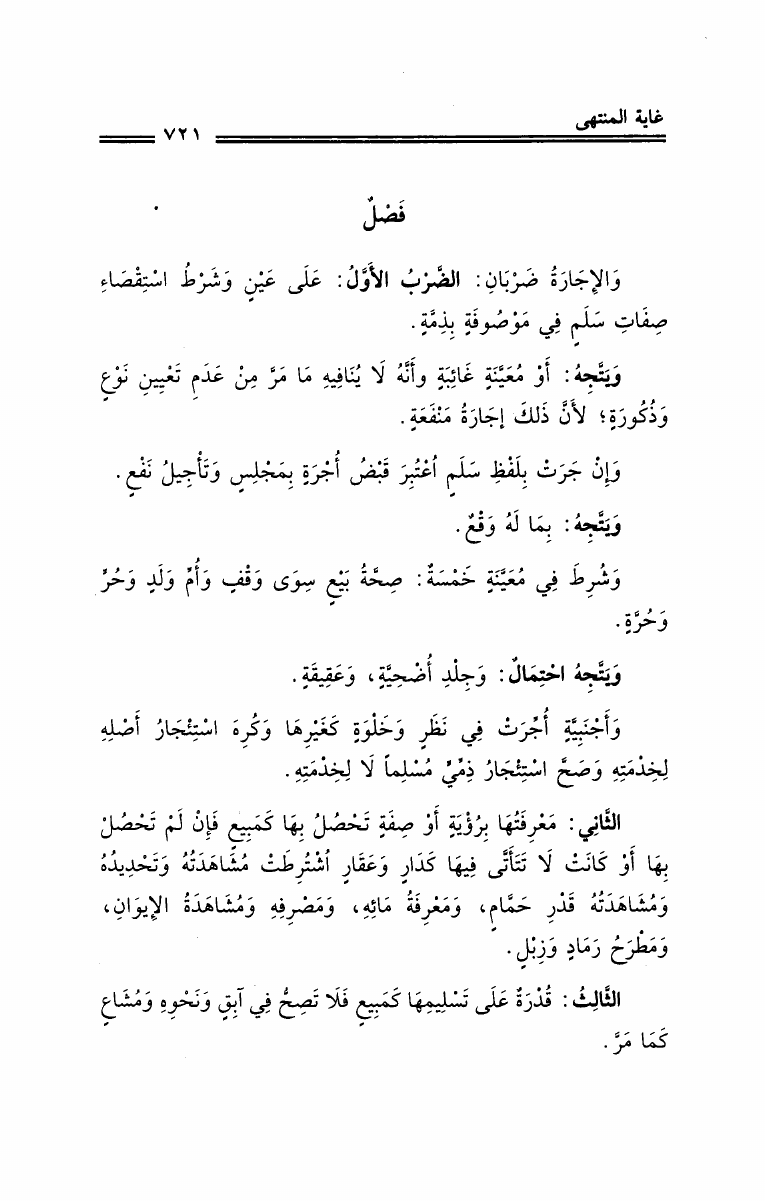 غاية المنتهى
٧٢١
فَصْلٌ
وَالإِجَارَةُ ضَرْبَانِ: الضَّرْبُ الأَوَّلُ: عَلَى عَيْنٍ وَشَرْطُ اسْتِقْصَاءِ
صِفَاتِ سَلَمٍ فِي مَوْصُوفَةٍ بِذِمَّةٍ.
وَيَتَّجِهُ: أَوْ مُعَيَّنَةٍ غَائِبَةٍ وأَنَّهُ لَا يُنَافِيهِ مَا مَرَّ مِنْ عَدَمِ تَعْيِينِ نَوْعٍ
وَذُكُورَةٍ؛ لأَنَّ ذَلكَ إجَارَةُ مَنْفَعَةٍ.
وَإِنْ جَرَتْ بِلَفْظِ سَلَمٍ اُعْتُبِرَ قَبْضُ أُجْرَةٍ بِمَجْلِسٍ وَتَأْجِيلُ نَفْعٍ.
وَيَتَّجِهُ: بِمَا لَهُ وَقْعٌ.
وَشُرِطَ فِي مُعَيَّنَةٍ خَمْسَةٌ: صِحَّةُ بَيْعٍ سِوَى وَقْفٍ وَأُمِّ وَلَدٍ وَحُرٍّ
وَحُرَّةٍ.
وَيَتَّجِهُ احْتِمَالٌ: وَجِلْدِ أُضْحِيَّةٍ، وَعَقِيقَةٍ.
وَأَجْنَبِيَّةٍ أُجِّرَتْ فِي نَظَرٍ وَخَلْوَةٍ كَغَيْرِهَا وَكُرِهَ اسْتِئْجَارُ أَصْلِهِ
لِخِدْمَتِهِ وَصَحَّ اسْتِئْجَارُ ذِمِّيٍّ مُسْلِماً لَا لِخِدْمَتِهِ.
الثَّانِي: مَعْرِفَتُهَا بِرُؤْيَةٍ أَوْ صِفَةٍ تَحْصُلُ بِهَا كَمَبِيعٍ فَإِنْ لَمْ تَحْصُلْ
بِهَا أَوْ كَانَتْ لَا تَتَأَتَّى فِيهَا كَدَارٍ وَعَقَارٍ اُشْتُرِطَتْ مُشَاهَدَتُهُ وَتَحْدِيدُهُ
وَمُشَاهَدَتُهُ قَدْرِ حَمَّامٍ، وَمَعْرِفَةُ مَائِهِ، وَمَصْرِفِهِ وَمُشَاهَدَةُ الإِيوَانِ،
وَمَطْرَحُ رَمَادٍ وَزِبْلٍ.
الثَّالِثُ: قُدْرَةٌ عَلَى تَسْلِيمِهَا كَمَبِيعٍ فَلَا تَصِحُّ فِي آبِقٍ وَنَحْوِهِ وَمُشَاعٍ
كَمَا مَرَّ.